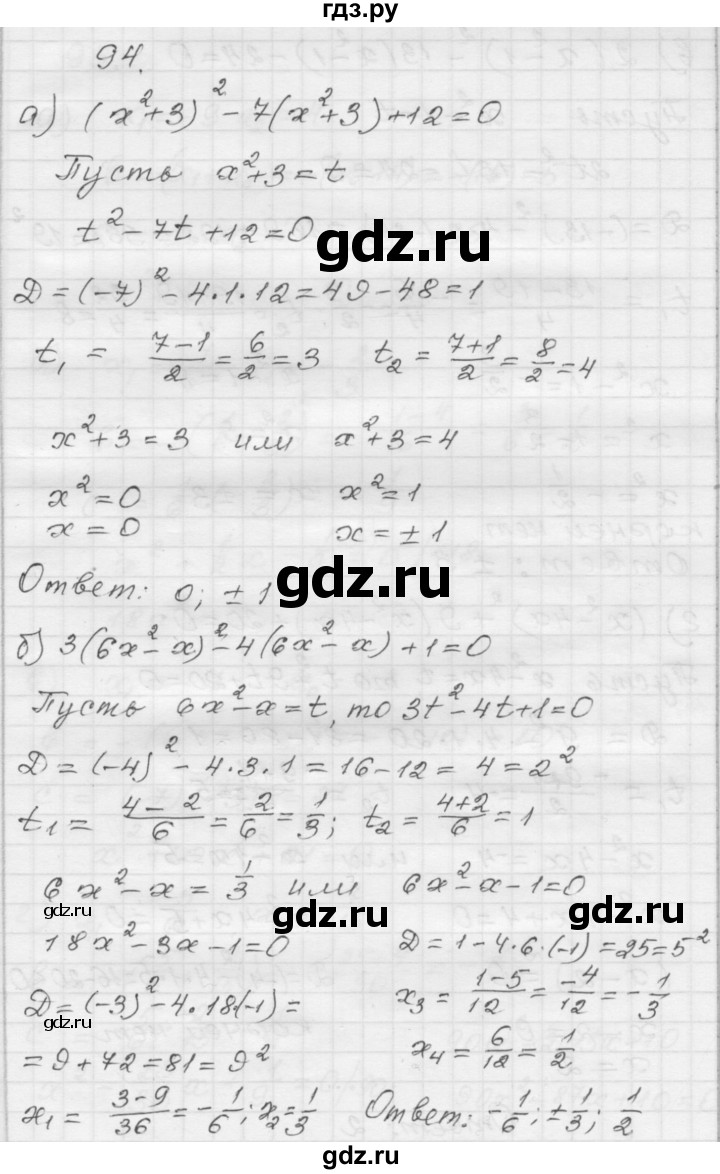 гдз.ру
94.
а) (x²+3)² - 7(x²+3)+12=0
Пусть x²+3=t
t²-7t+12=0
gdz.ru
Д=(-7)²-4·1·12=49-48=1
t₁ = (7-1)/2 = 6/2 = 3   t₂ = (7+1)/2 = 8/2 = 4
x²+3=3 или x²+3=4
x²=0   x²=1
x=0   x=±1
gdz.ru
Ответ: 0; ±1
б) 3(6x²-x)²-4(6x²-x)+1=0
Пусть 6x²-x=t, то 3t²-4t+1=0
Д=(-4)²-4·3·1=16-12=4=2²
t₁= (4-2)/6 = 2/6 = 1/3; t₂ = (4+2)/6 = 1
6x²-x=1/3 или 6x²-x-1=0
gdz.ru gdz.ru gdz.ru
18x²-3x-1=0   Д=1-4·6·(-1)=25=5²
Д=(-3)²-4·18(-1)=   x₃ = (1-5)/12 = -4/12 = -1/3
=9+72=81=9²   x₄ = 6/12 = 1/2
x₁ = (3-9)/36 = -1/6; x₂=1/3   Ответ: -1/6; ±1/3; 1/2
gdz.ru